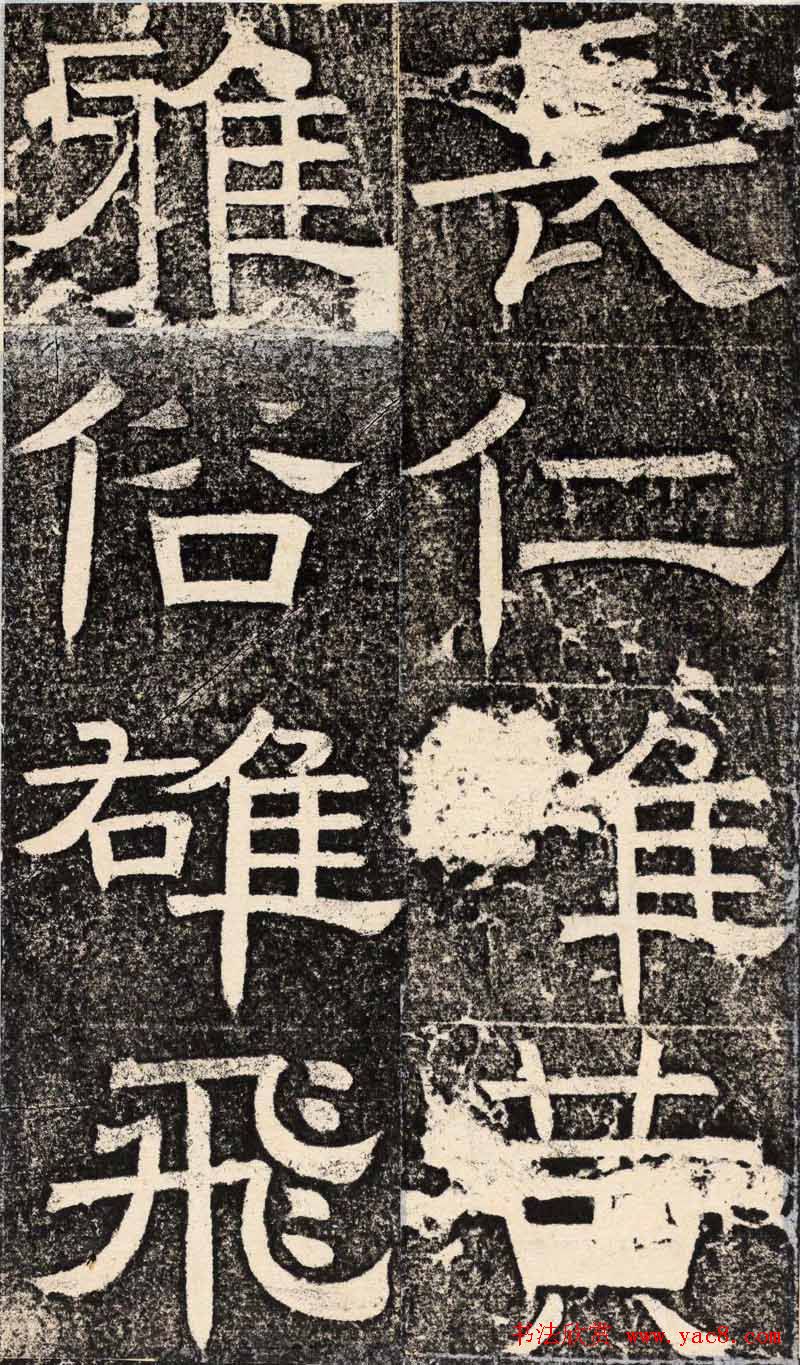 長仁黄
雅俗雄飛
书法欣赏 www.yac8.com